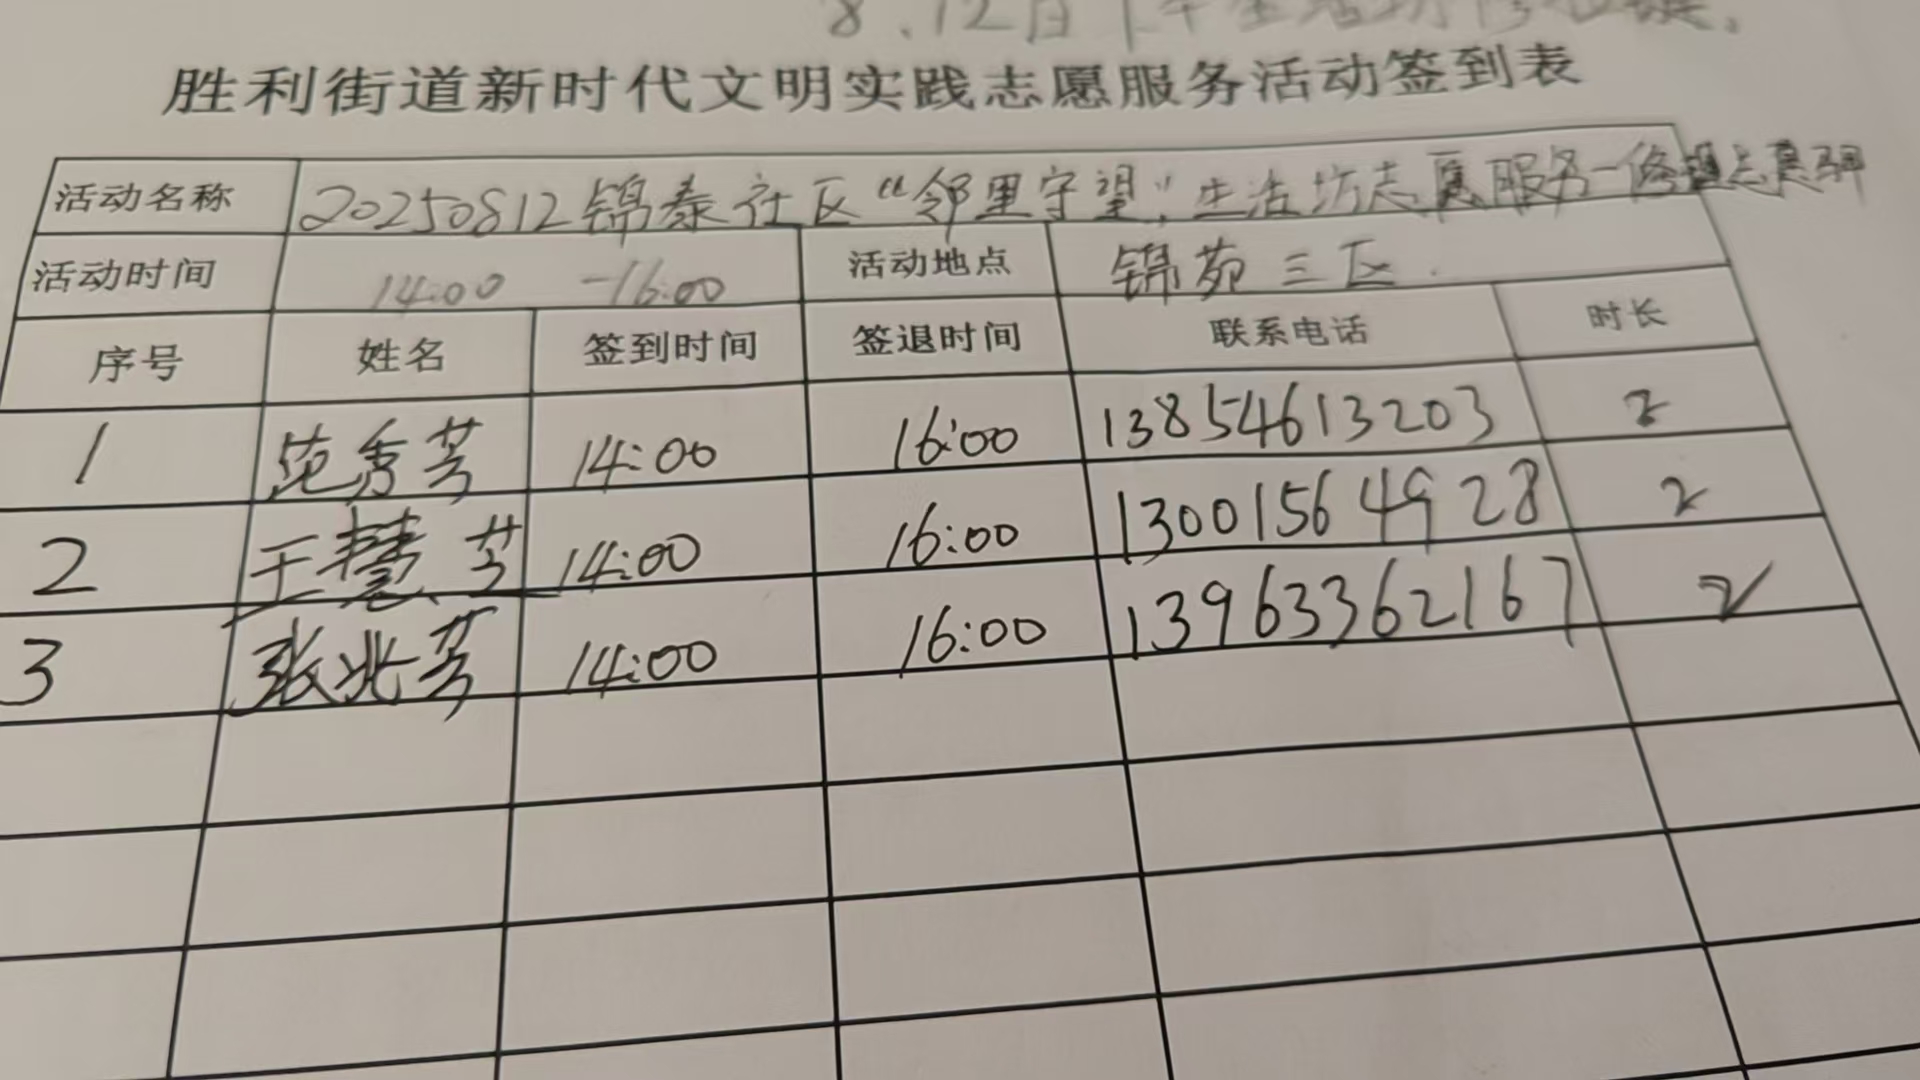 8.12日下午
胜利街道新时代文明实践志愿服务活动签到表
活动名称 20250812锦泰社区“邻里守望”,生活坊志愿服务一修
活动时间 14:00 -16:00 活动地点 锦苑三区.
序号 姓名 签到时间 签退时间 联系电话 时长
1 范秀芳 14:00 16:00 13854613203 2
2 王慧芳 14:00 16:00 13001564928 2
3 张兆芳 14:00 16:00 13963362167 2